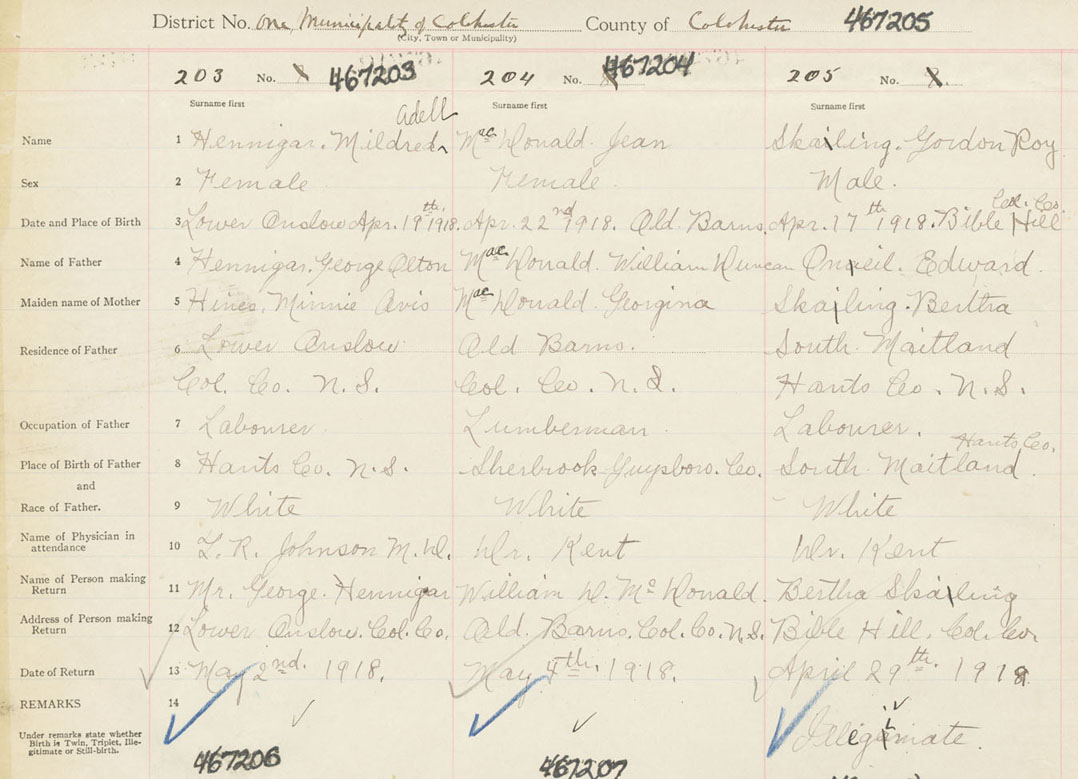 District No. One Municipality of Colchester County of Colchester 467205
(City, Town or Municipality)
203 No. 8 467203 204 No. 467204 205 No. 8.
Surname first Surname first Surname first
adell
Name 1 Hennigar, Mildred MacDonald. Jean Skailing. Gordon Roy
Sex 2 Female Female. Male.
Col. Co.
Date and Place of Birth 3 Lower Onslow Apr. 19th 1918. Apr. 22nd 1918. Old Barns. Apr. 17th 1918. Bible Hill
Name of Father 4 Hennigar, George Olton MacDonald. William Duncan Oneil. Edward.
Maiden name of Mother 5 Hines, Minnie Avis MacDonald. Georgina Skailing. Bertha
Residence of Father 6 Lower Onslow Old Barns. South Maitland
Col. Co. N.S. Col. Co. N.S. Hants Co. N.S.
Occupation of Father 7 Labourer Lumberman. Labourer.
Hants Co.
Place of Birth of Father 8 Hants Co. N.S. Sherbrook Guysboro. Co. South Maitland.
and
Race of Father. 9 White White White
Name of Physician in
attendance 10 L. R. Johnson M.D. Dr. Kent Dr. Kent
Name of Person making
Return 11 Mr. George Hennigar William D. McDonald. Bertha Skailing
Address of Person making
Return 12 Lower Onslow. Col. Co. Old Barns, Col. Co. N.S. Bible Hill, Col. Co.
Date of Return 13 May 2nd. 1918. May 4th. 1918. April 29th. 1918
REMARKS 14
Under remarks state whether
Birth is Twin, Triplet, Ille-
gitimate or Still-birth.
Illegitimate.
467206 467207